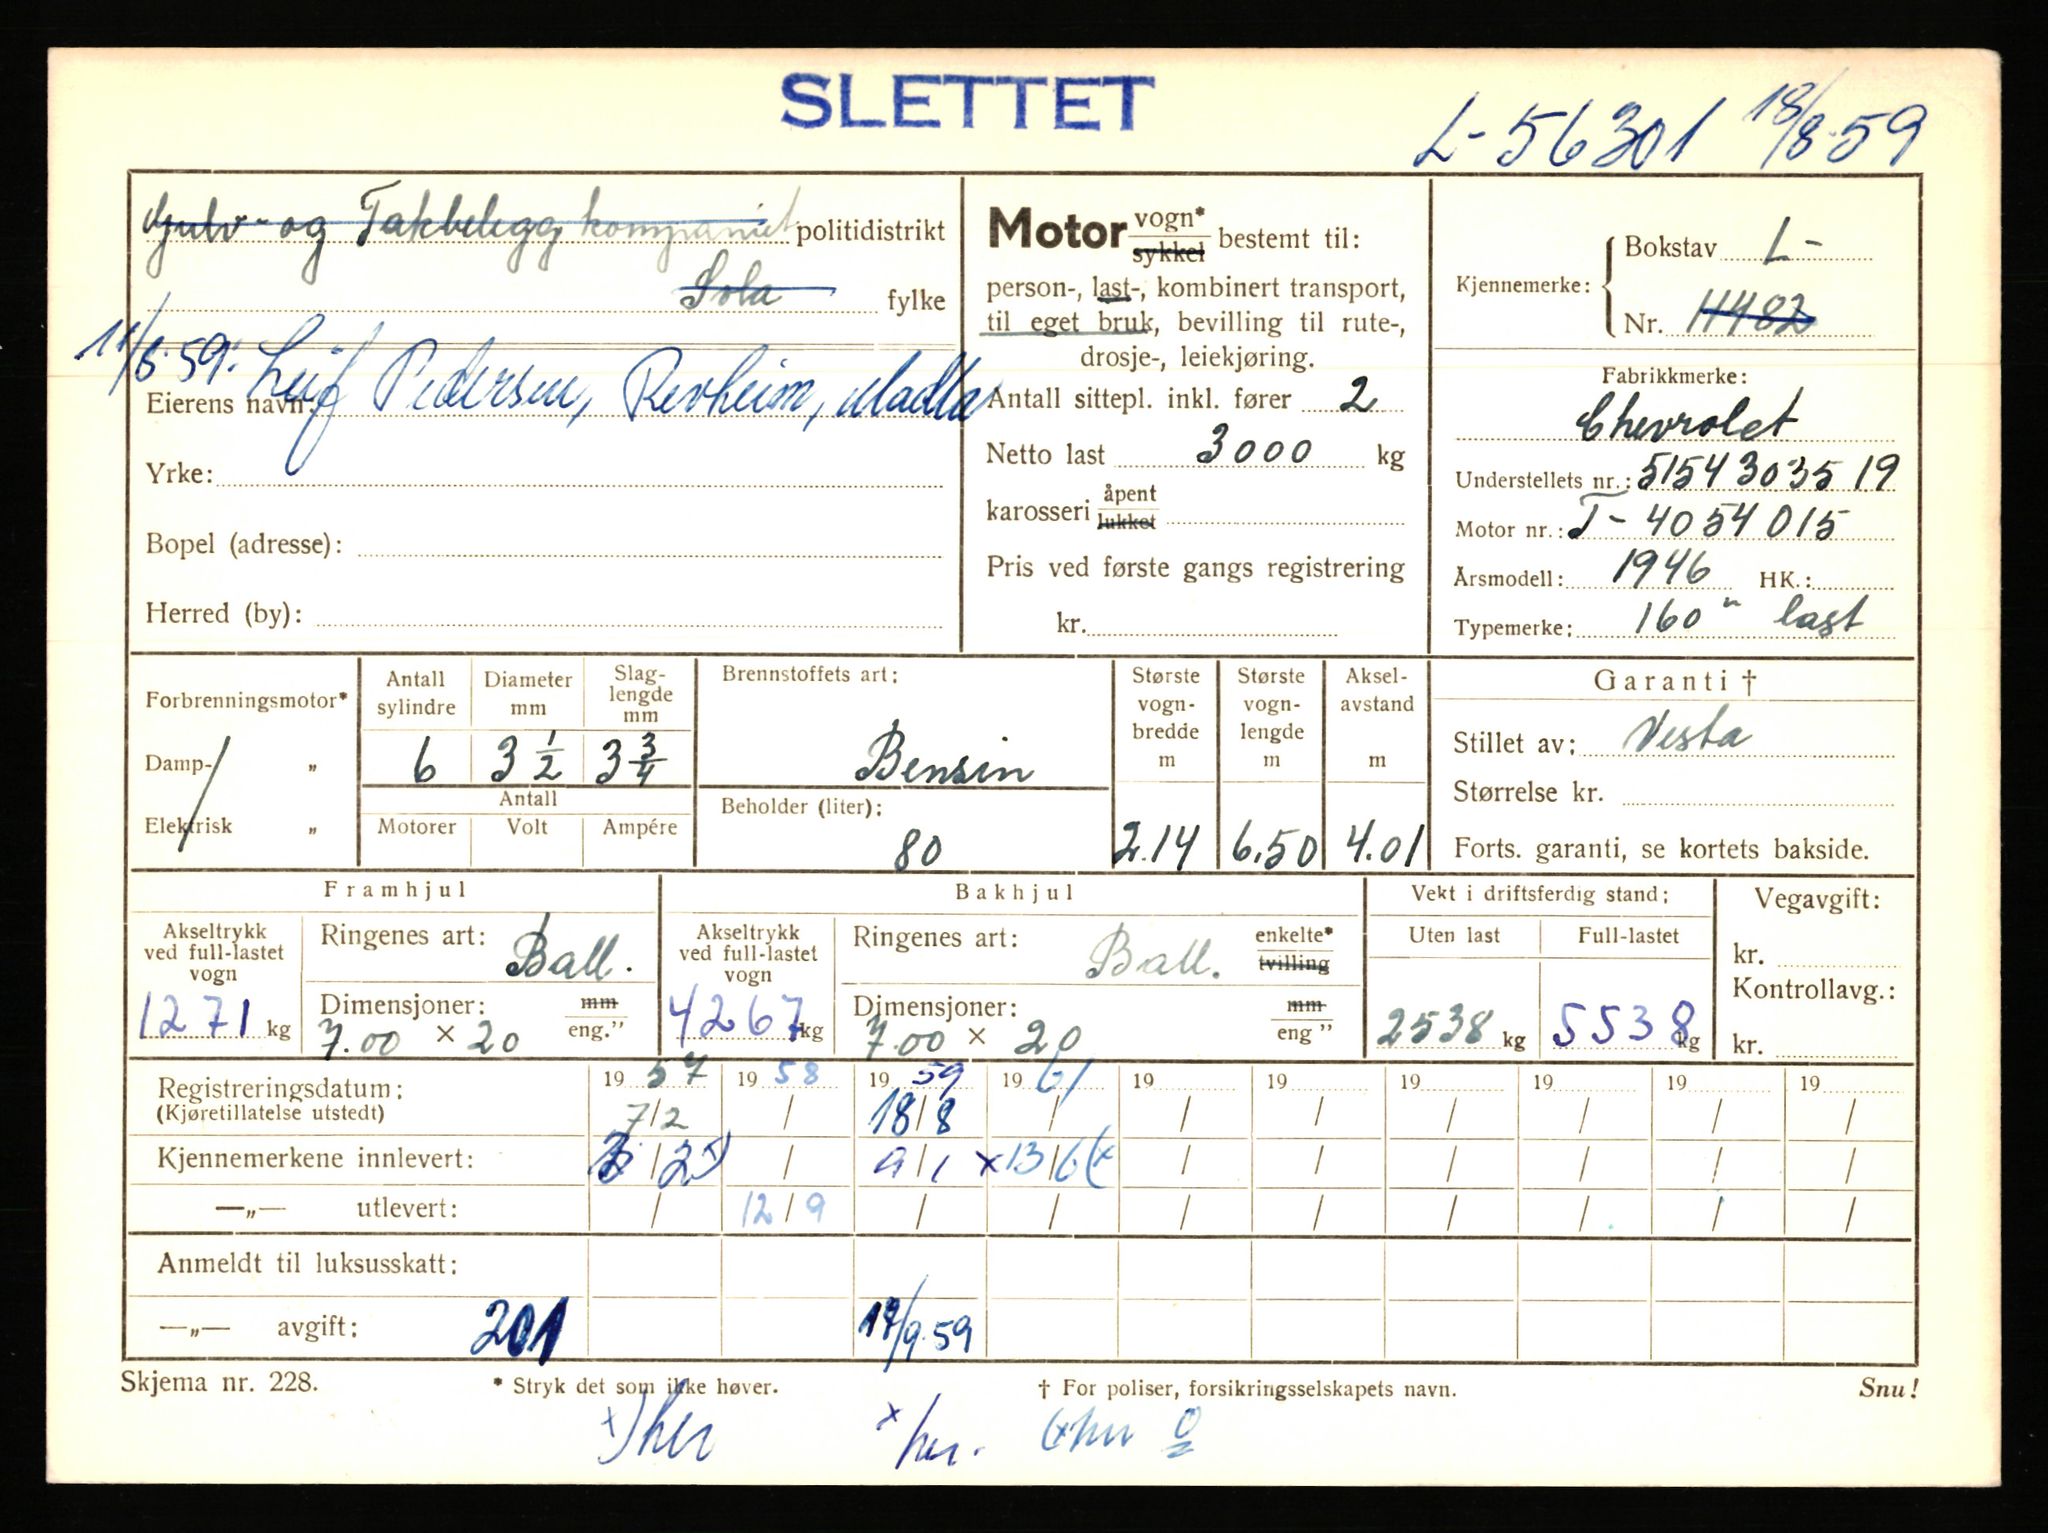 SLETTET
L-56301 18/8-59
Gulv- og Takbelegg kompaniet politidistrikt
Sola fylke
11/8-59: Leif Pedersen, Revheim, Madla
Eierens navn:
Yrke:
Bopel (adresse):
Herred (by):
Motor vogn* sykkel bestemt til:
person-, last-, kombinert transport,
til eget bruk, bevilling til rute-,
drosje-, leiekjøring.
Antall sittepl. inkl. fører 2
Netto last 3000 kg
karosseri åpent lukket
Pris ved første gangs registrering
kr.
Kjennemerke: Bokstav L-
Nr. 11482
Fabrikkmerke:
Chevrolet
Understellets nr.: 5154303519
Motor nr.: T-4054015
Årsmodell: 1946 HK.:
Typemerke: 160" last
Forbrenningsmotor*
Damp- "
Elektrisk "
Antall sylindre
6
Diameter mm
3 1/2
Slag-lengde mm
3 3/4
Antall
Motorer Volt Ampére
Brennstoffets art:
Bensin
Beholder (liter):
80
Største vogn-bredde m
2.14
Største vogn-lengde m
6.50
Aksel-avstand m
4.01
Garanti †
Stillet av: Vesta
Størrelse kr.
Forts. garanti, se kortets bakside.
Framhjul
Akseltrykk ved full-lastet vogn
1271 kg
Ringenes art: Ball.
Dimensjoner: mm eng."
7.00 × 20
Bakhjul
Akseltrykk ved full-lastet vogn
4267 kg
Ringenes art: Ball. enkelte* tvilling
Dimensjoner: mm eng"
7.00 × 20
Vekt i driftsferdig stand:
Uten last Full-lastet
2538 kg 5538 kg
Vegavgift:
kr.
Kontrollavg.:
kr.
Registreringsdatum: 1957 1958 1959 1961 19 19 19 19 19 19
(Kjøretillatelse utstedt) 7/2 / 18/8 / / / / / / /
Kjennemerkene innlevert: / 9/1 × 13/6 (× / / / / / /
—„— utlevert: / 12/9 / / / / / / / /
Anmeldt til luksusskatt:
—„— avgift: 201 /9-59
Skjema nr. 228. * Stryk det som ikke høver. † For poliser, forsikringsselskapets navn. Snu!
×) her × her. (× her 0